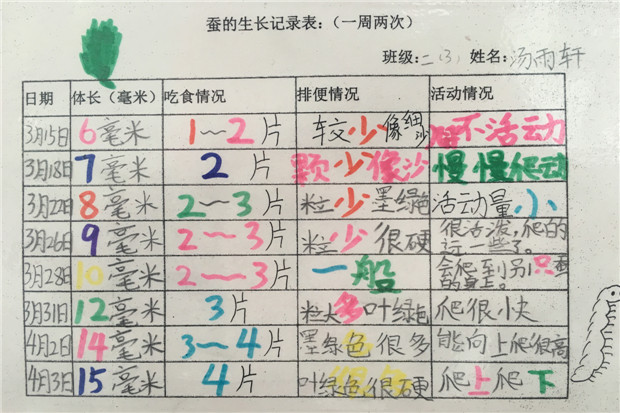 蚕的生长记录表：（一周两次）
班级：二（3） 姓名：汤雨轩
日期 体长（毫米） 吃食情况 排便情况 活动情况
3月15日 6毫米 1～2片 较少像细沙 不活动
3月18日 7毫米 2片 颗少像沙 慢慢爬动
3月22日 8毫米 2～3片 粒少墨绿色 活动量小
3月26日 9毫米 2～3片 粒少很硬 很活泼，爬的
远一些了。
3月28日 10毫米 2～3片 一般 会爬到别只蚕
的身上。
3月31日 12毫米 3片 粒大多叶绿色 爬很小快
4月2日 14毫米 3～4片 墨绿色很多 能向上爬很高
4月3日 15毫米 4片 叶绿色很硬 爬上爬下